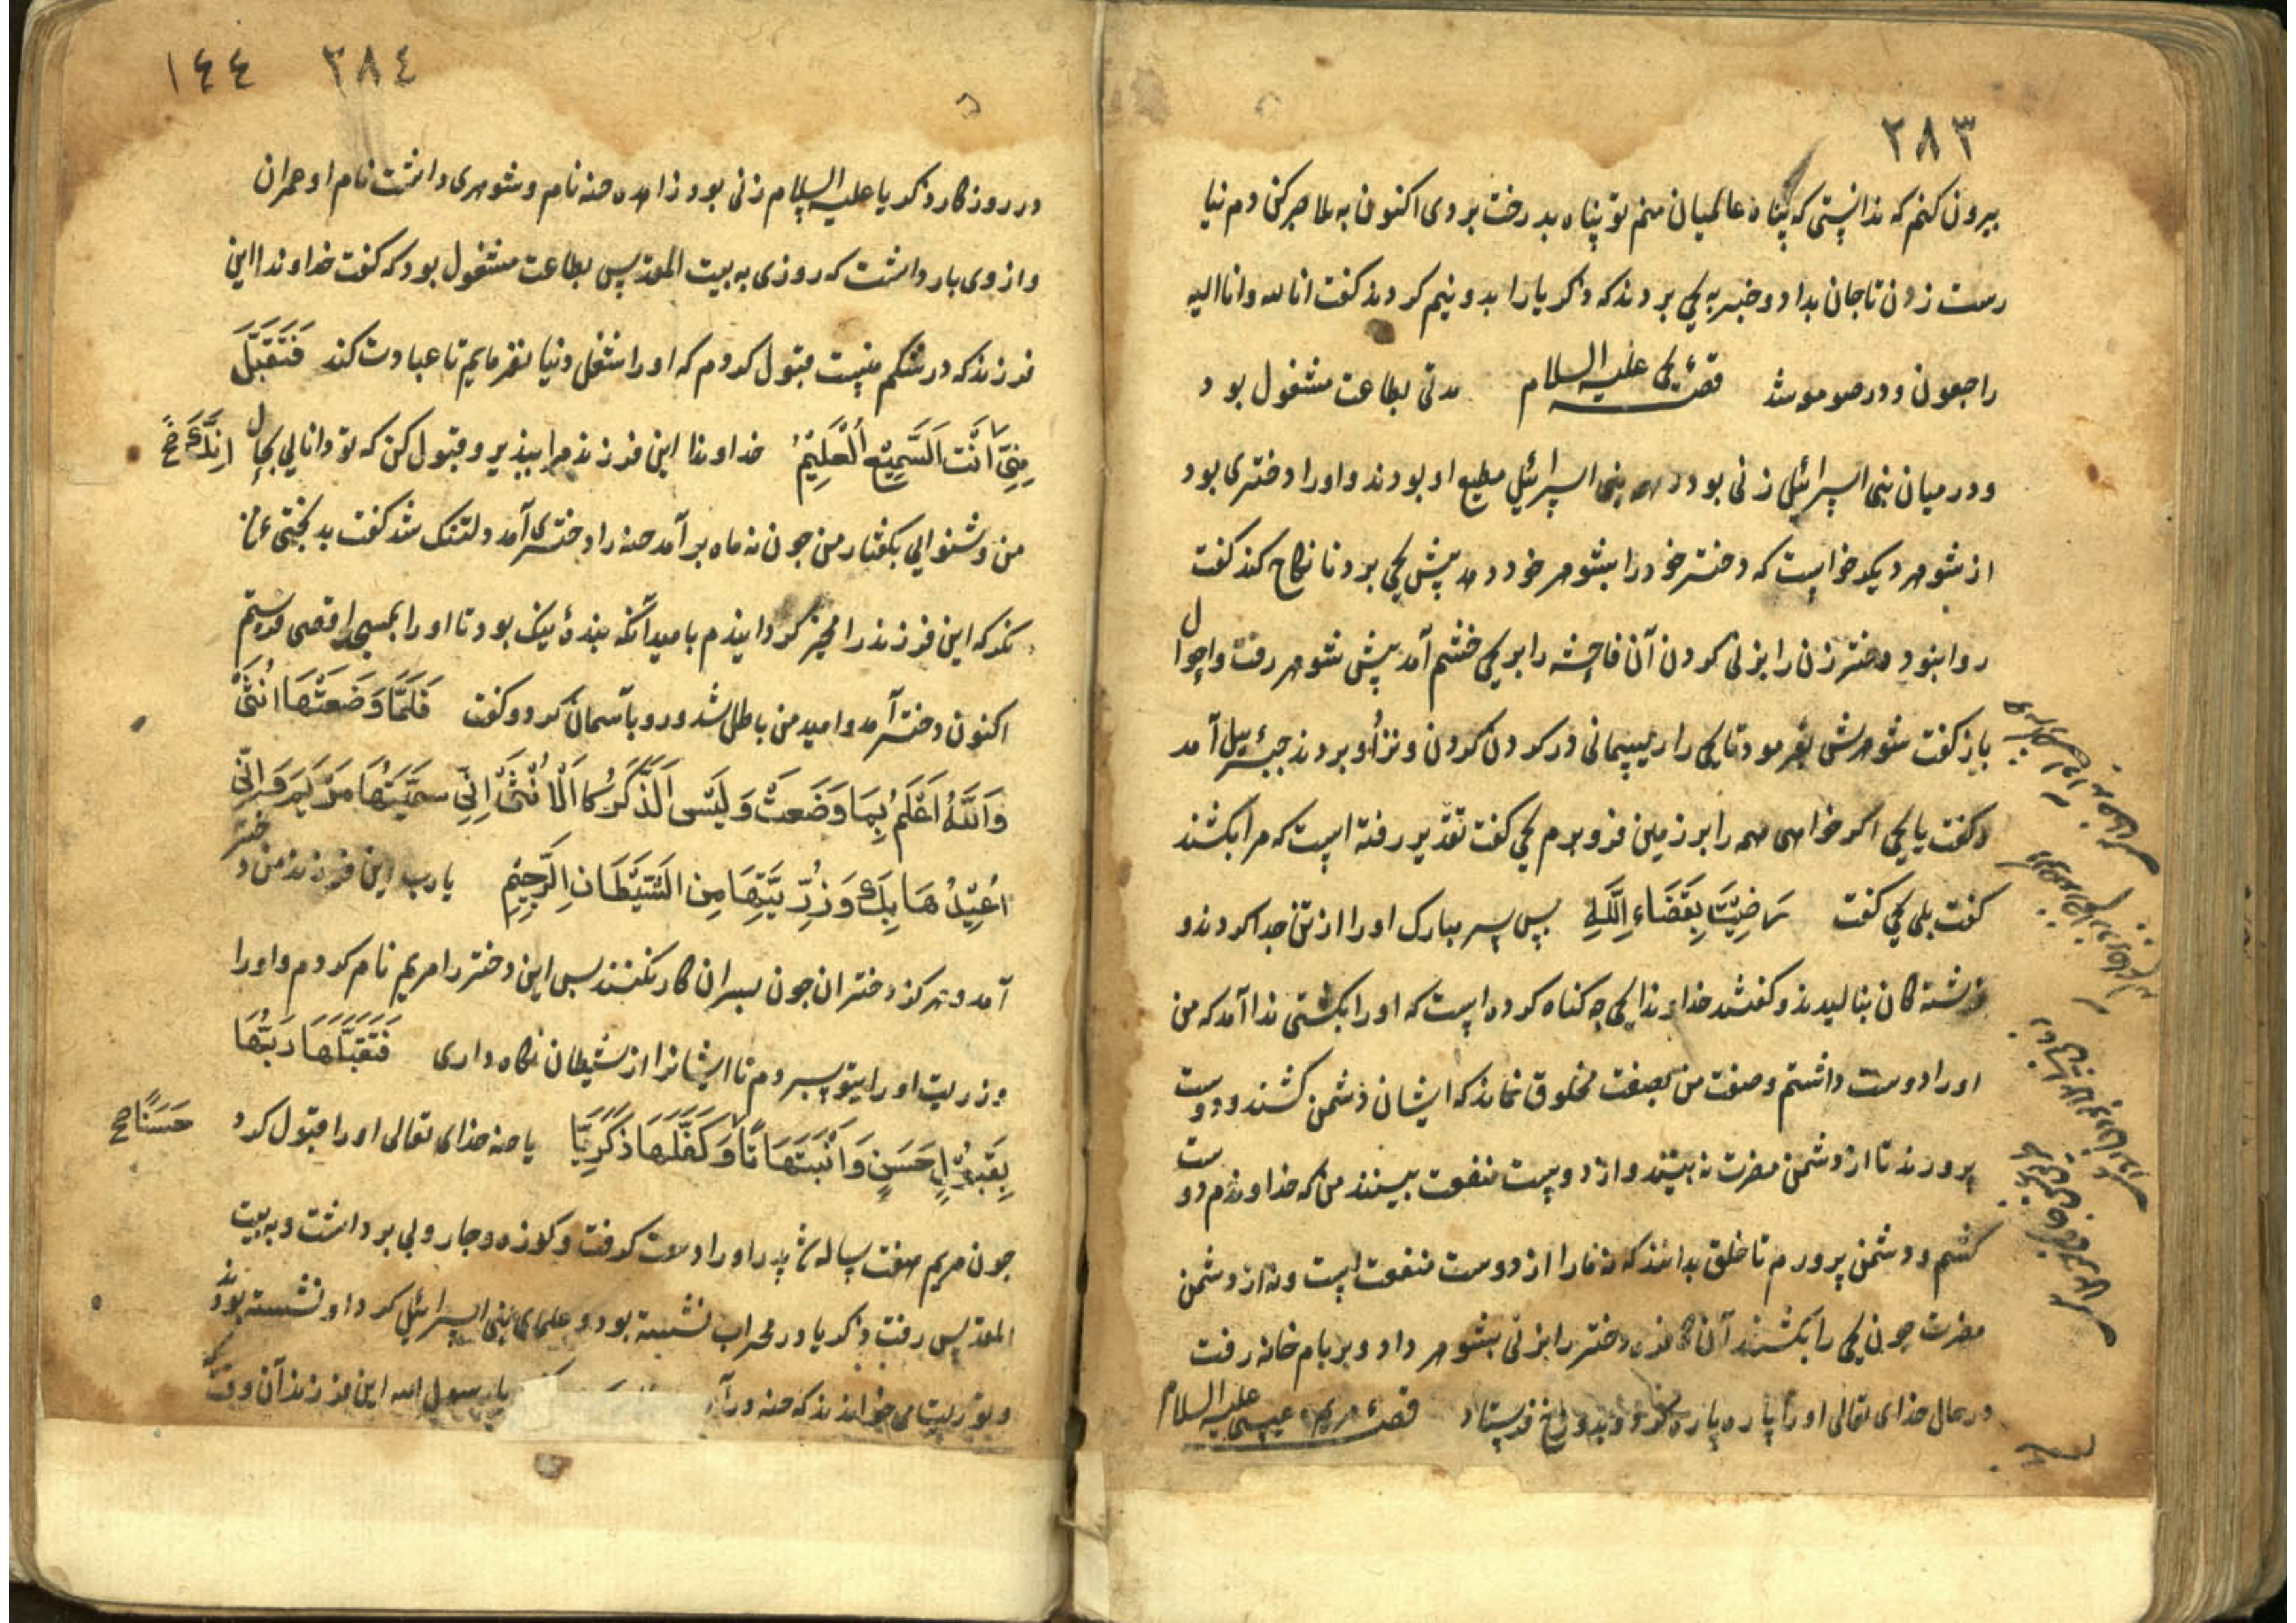 ٢٨٣
بیرون کنم که ندانستی که پناه عالمیان منم تو پناه بدرخت بردی اکنون به بلا صبر کن دم نیا
رست زدن تا جان بداد و خبر به یحیی بردند که ذکریا را بدو نیم کردند کفت انا لله وانا الیه
راجعون و در صومعه شد قصهٔ یحیی علیه السلام مدتی بطاعت مشغول بود
و در میان بنی اسرائیل زنی بود همه بنی اسرائیل مطیع او بودند و اورا دختری بود
از شوهر دیکر خواست که دختر خود را بشوهر خود دهد پیش یحیی برد تا نکاح کند کفت
روا نبود دختر زن را بزنی کردن آن فاحشه را بر یحیی خشم آمد پیش شوهر رفت واحوال
باز کفت شوهرش بفرمود تا یحیی را ریسمانی در کردن کردن و نزد او بردند جبرئیل آمد
و کفت یا یحیی اکر خواهی همه را بر زمین فرو برم یحیی کفت تقدیر رفته است که مرا بکشند
کفت بلی یحیی کفت رَضِیتُ بِقَضَاءِ اللَّهِ پس سر مبارک او را از تن جدا کردند و
فرشته کان بنالیدند و کفتند خداوندا یحیی چه کناه کرده است که او را بکشتی ندا آمد که من
اورا دوست داشتم و صفت من بصفت مخلوق نماند که ایشان دشمن کشند و دوست
پرورند تا از دشمن مضرت نه بینند و از دوست منفعت بینند من که خداوندم دوست
کشم و دشمن پرورم تا خلق بدانند که نه مارا از دوست منفعت است ونه از دشمن
مضرت چون یحیی را بکشتند آن کافره دختر را بزنی بشوهر داد و بر بام خانه رفت
در حال خدای تعالی او را پاره پاره کرد و بدوزخ فرستاد قصهٔ مریم و عیسی علیه السلام
٢٨٤ ١٤٤
در روزکار ذکریا علیه السلام زنی بود زاهده حنه نام و شوهری داشت نام او عمران
و از وی بار داشت که روزی به بیت المقدس بطاعت مشغول بود که کفت خداوندا این
فرزند که در شکم منست قبول کردم که او را شغل دنیا نفرمایم تا عبادت کند فَتَقَبَّلْ
مِنِّی اَنْتَ السَّمِیعُ الْعَلِیمُ خداوندا این فرزند مرا بپذیر و قبول کن که تو دانایی بحال
اِنَّكَ صح
من و شنوایی بکفتار من جون نه ماه بر آمد حنه را دختری آمد دلتنک شد کفت بدبختی
نکر که این فرزند را محرر کردانیدم بامید آنکه بندهٔ نیک بود تا او را بمسجد اقصی فرستم
اکنون دختر آمد و امید من باطل شد و رو بآسمان کرد و کفت فَلَمَّا وَضَعَتْهَا اُنْثَی
وَاللَّهُ اَعْلَمُ بِمَا وَضَعَتْ وَلَیْسَ الذَّكَرُ كَالْاُنْثَی اِنِّی سَمَّیْتُهَا مَرْیَمَ وَاِنِّی
اُعِیذُهَا بِكَ وَذُرِّیَّتَهَا مِنَ الشَّیْطَانِ الرَّجِیمِ یا رب این فرزند من دختر
آمد و هرکز دختران جون پسران کار نکنند پس این دختر را مریم نام کردم و اورا
و زریت او را بتو سپردم تا ایشانرا از شیطان نکاه داری فَتَقَبَّلَهَا رَبُّهَا
بِقَبُولٍ حَسَنٍ وَاَنْبَتَهَا نَبَاتًا وَكَفَّلَهَا ذَكَرِیَّا یا حنه خدای تعالی او را قبول کرد
حَسَنًا صح
جون مریم هفت ساله شد پدر او را دست کرفت و کوزه و جاروبی برداشت و به بیت
المقدس رفت ذکریا در محراب نشسته بود و علمای بنی اسرائیل کرد او نشسته بودند
و توریت می خواندند که حنه در آمد یا رسول الله این فرزند آن وقت